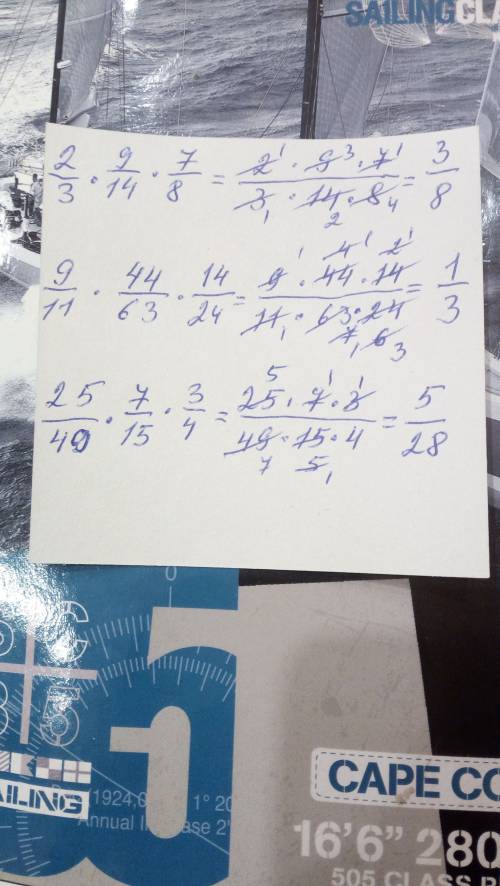 SAILING CLA
2/3 · 9/14 · 7/8 = 2¹ · 9³ · 7¹ / 3₁ · 14₂ · 8₄ = 3/8
9/11 · 44/63 · 14/24 = 9¹ · 44 4¹ · 14 2¹ / 11₁ · 63 7₁ · 24 6 3 = 1/3
25/49 · 7/15 · 3/4 = 25 5 · 7¹ · 3¹ / 49 7 · 15 5₁ · 4 = 5/28
0
5
AILING
(1924,
1° 20
Annual
ase 2'
CAPE CO
16'6" 280
505 CLASS